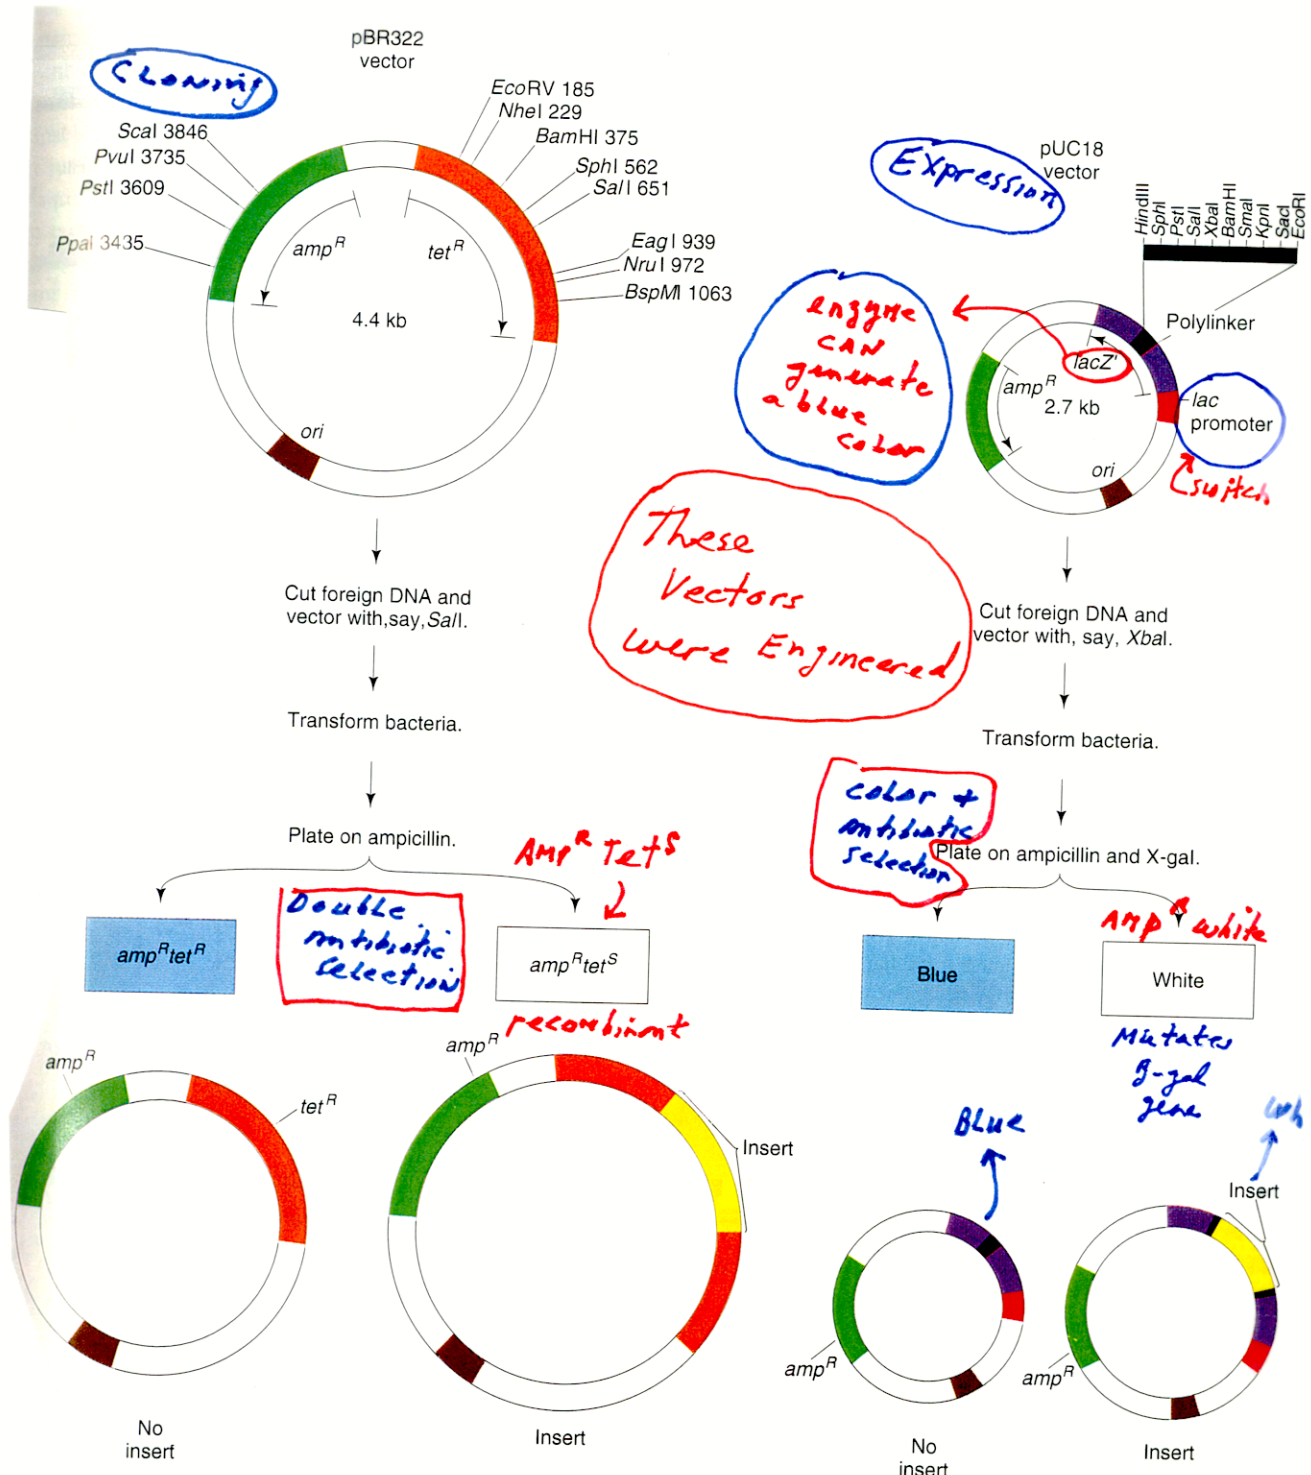 pBR322
vector
CLoning
EcoRV 185
NheI 229
BamHI 375
SphI 562
SalI 651
EagI 939
NruI 972
BspMI 1063
ScaI 3846
PvuI 3735
PstI 3609
PpaI 3435
amp^R
tet^R
4.4 kb
ori
Cut foreign DNA and
vector with,say,SalI.
Transform bacteria.
Plate on ampicillin.
AMP^R Tet^S
Double
antibiotic
selection
amp^R tet^R
amp^R tet^S
recombinant
amp^R
tet^R
No
insert
amp^R
Insert
Insert
Expression
pUC18
vector
HindIII
SphI
PstI
SalI
XbaI
BamHI
SmaI
KpnI
SacI
EcoRI
Polylinker
enzyme
CAN
generate
a blue
color
lacZ'
amp^R
2.7 kb
lac
promoter
switch
ori
These
Vectors
were Engineered
Cut foreign DNA and
vector with, say, XbaI.
Transform bacteria.
color +
antibiotic
selection
Plate on ampicillin and X-gal.
AMP^R white
Blue
White
Mutates
β-gal
gene
BLue
wh
Insert
amp^R
No
insert
amp^R
Insert